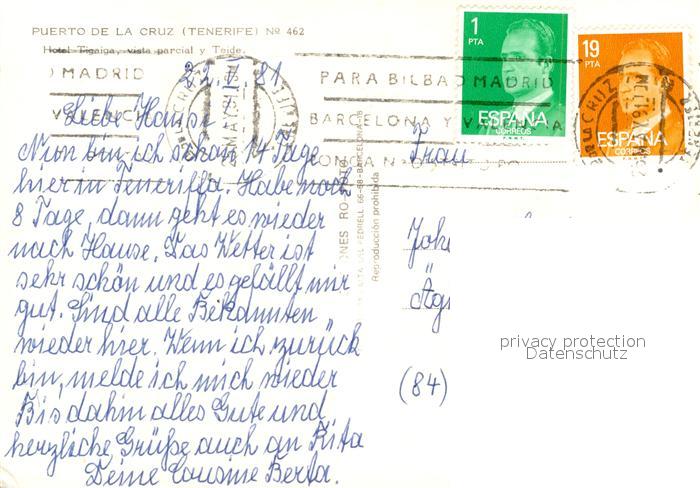 PUERTO DE LA CRUZ (TENERIFE) Nº 462
Hotel Tigaiga, vista parcial y Teide.
MADRID
PARA BILBAO MADRID
BARCELONA Y
1
PTA
ESPAÑA
CORREOS
19
PTA
ESPAÑA
CORREOS
81
Liebe
Nun bin ich schon 14 Tage
hier in Teneriffa. Habe noch
8 Tage, dann geht es wieder
nach Hause. Das Wetter ist
sehr schön und es gefällt mir
gut. Sind alle Bekannten
wieder hier. Wenn ich zurück
bin, melde ich mich wieder
Bis dahin alles Gute und
herzliche Grüße auch an Rita
Deine Cousine Berta.
Reproducción prohibida
Frau
(84)
privacy protection
Datenschutz